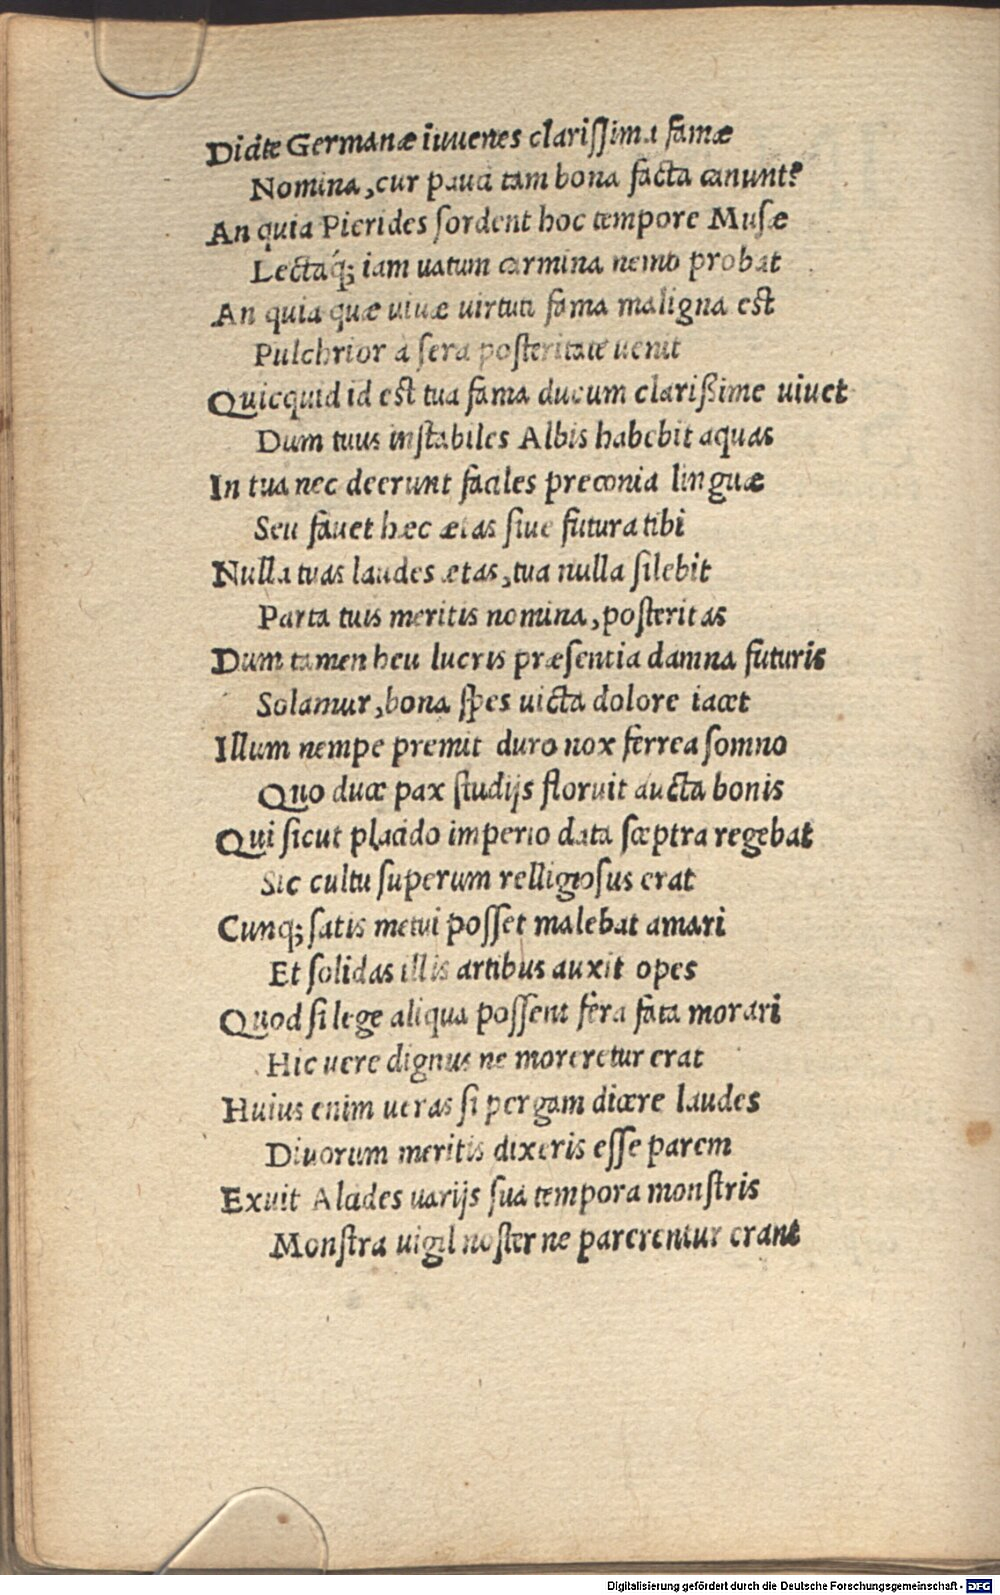 Dicite Germanæ iuuenes clarissima famæ
Nomina, cur pauci tam bona facta canunt?
An quia Pierides sordent hoc tempore Musæ
Lectaq́; iam uatum carmina nemo probat
An quia quæ uiuæ uirtuti fama maligna est
Pulchrior a sera posteritate uenit
Quicquid id est tua fama ducum clarißime uiuet
Dum tuus instabiles Albis habebit aquas
In tua nec deerunt faciles preconia linguæ
Seu fauet hæc ætas siue futura tibi
Nulla tuas laudes ætas, tua nulla silebit
Parta tuis meritis nomina, posteritas
Dum tamen heu lucris præsentia damna futuris
Solamur, bona spes uicta dolore iacet
Illum nempe premit duro nox ferrea somno
Quo duce pax studijs floruit aucta bonis
Qui sicut placido imperio data sceptra regebat
Sic cultu superum relligiosus erat
Cunq; satis metui posset malebat amari
Et solidas illis artibus auxit opes
Quod si lege aliqua possent fera fata morari
Hic uere dignus ne moreretur erat
Huius enim ueras si pergam dicere laudes
Diuorum meritis dixeris esse parem
Exuit Alcides uarijs sua tempora monstris
Monstra uigil noster ne parerentur erant
Digitalisierung gefördert durch die Deutsche Forschungsgemeinschaft - DFG